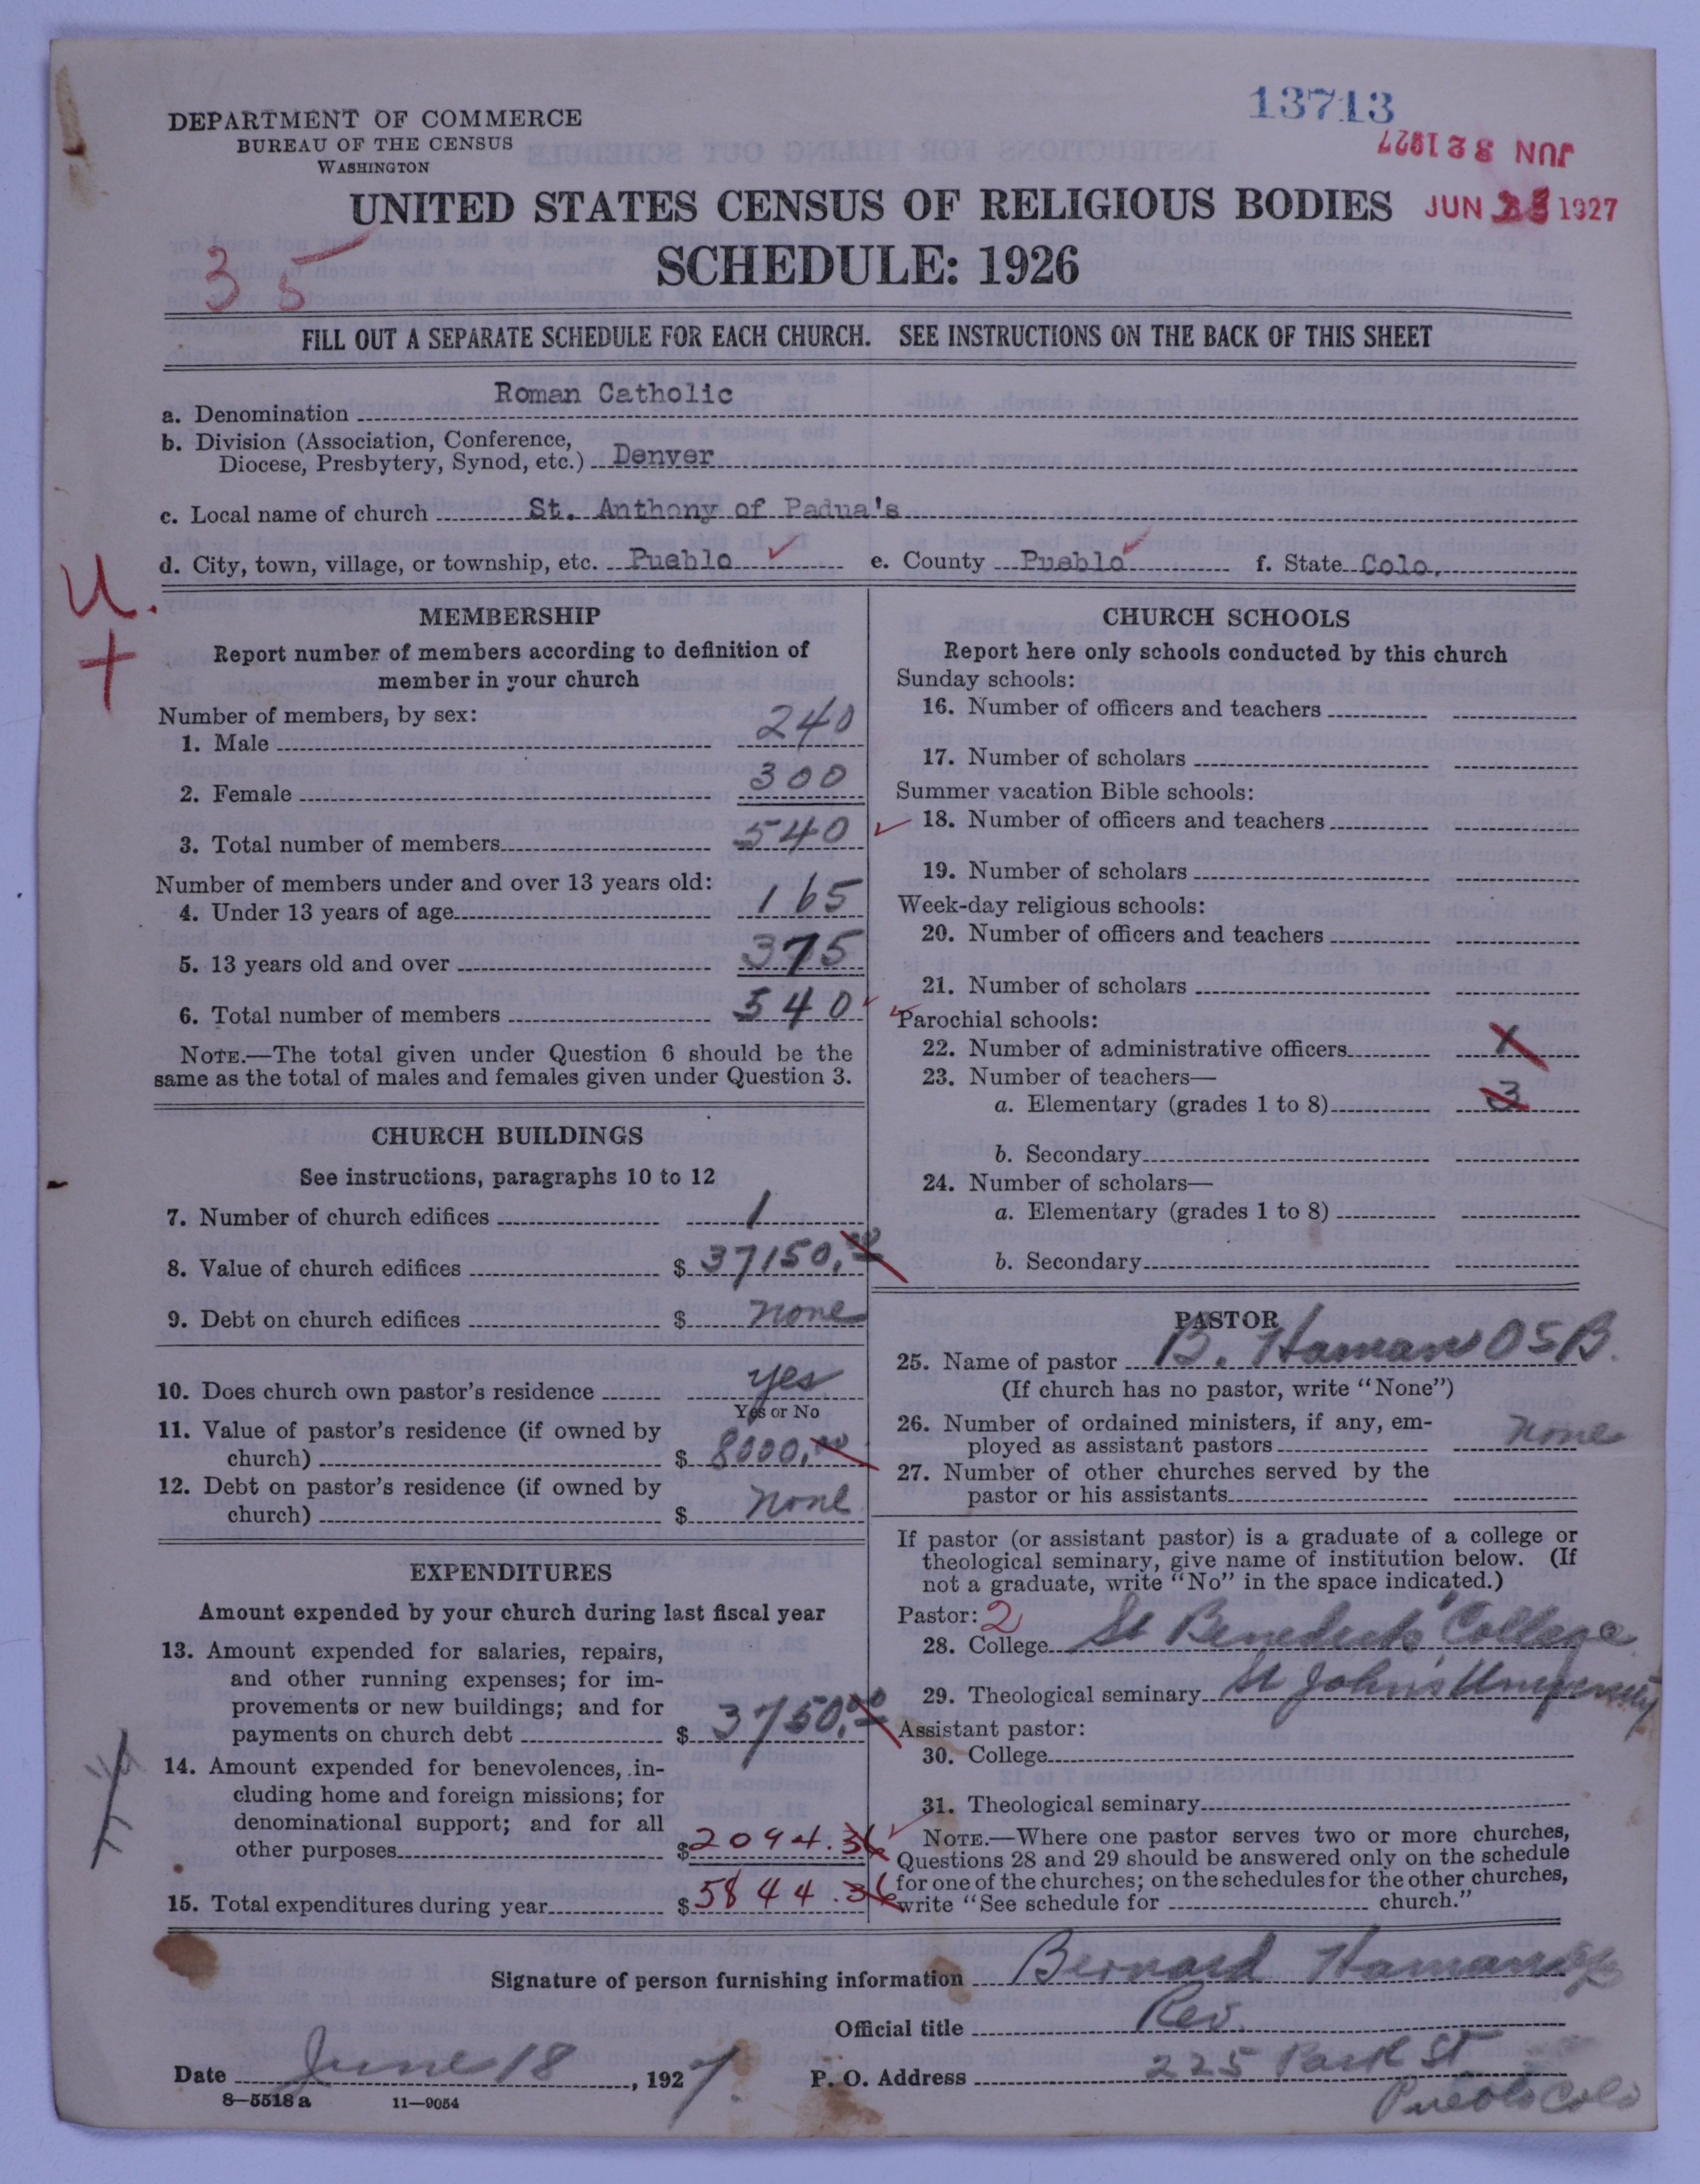 13713
JUN 3 22 1927
DEPARTMENT OF COMMERCE
BUREAU OF THE CENSUS
WASHINGTON
UNITED STATES CENSUS OF RELIGIOUS BODIES
JUN 1927
35
SCHEDULE: 1926
FILL OUT A SEPARATE SCHEDULE FOR EACH CHURCH. SEE INSTRUCTIONS ON THE BACK OF THIS SHEET
a. Denomination Roman Catholic
b. Division (Association, Conference,
Diocese, Presbytery, Synod, etc.) Denver
c. Local name of church St. Anthony of Padua's
d. City, town, village, or township, etc. Pueblo e. County Pueblo f. State Colo.
U.
+
MEMBERSHIP
Report number of members according to definition of
member in your church
Number of members, by sex:
1. Male 240
2. Female 300
3. Total number of members 540
Number of members under and over 13 years old:
4. Under 13 years of age 165
5. 13 years old and over 375
6. Total number of members 540
NOTE.—The total given under Question 6 should be the
same as the total of males and females given under Question 3.
CHURCH BUILDINGS
See instructions, paragraphs 10 to 12
7. Number of church edifices 1
8. Value of church edifices $ 37150.00
9. Debt on church edifices $ none
10. Does church own pastor's residence yes
Yes or No
11. Value of pastor's residence (if owned by
church) $ 8000.00
12. Debt on pastor's residence (if owned by
church) $ none
EXPENDITURES
Amount expended by your church during last fiscal year
13. Amount expended for salaries, repairs,
and other running expenses; for im-
provements or new buildings; and for
payments on church debt $ 3750.00
14. Amount expended for benevolences, in-
cluding home and foreign missions; for
denominational support; and for all
other purposes $ 2094.36
15. Total expenditures during year $ 5844.36
CHURCH SCHOOLS
Report here only schools conducted by this church
Sunday schools:
16. Number of officers and teachers
17. Number of scholars
Summer vacation Bible schools:
18. Number of officers and teachers
19. Number of scholars
Week-day religious schools:
20. Number of officers and teachers
21. Number of scholars
Parochial schools:
22. Number of administrative officers 1
23. Number of teachers—
a. Elementary (grades 1 to 8) 3
b. Secondary
24. Number of scholars—
a. Elementary (grades 1 to 8)
b. Secondary
PASTOR
25. Name of pastor B. Hamann OSB.
(If church has no pastor, write "None")
26. Number of ordained ministers, if any, em-
ployed as assistant pastors none
27. Number of other churches served by the
pastor or his assistants
If pastor (or assistant pastor) is a graduate of a college or
theological seminary, give name of institution below. (If
not a graduate, write "No" in the space indicated.)
Pastor: 2
28. College St Benedicts' College
29. Theological seminary St John's University
Assistant pastor:
30. College
31. Theological seminary
NOTE.—Where one pastor serves two or more churches,
Questions 28 and 29 should be answered only on the schedule
for one of the churches; on the schedules for the other churches,
write "See schedule for church."
Signature of person furnishing information Bernard Hamann
Official title Rev.
Date June 18, 1927. P. O. Address 225 Park St
Pueblo Colo
8—5518 a 11—9054